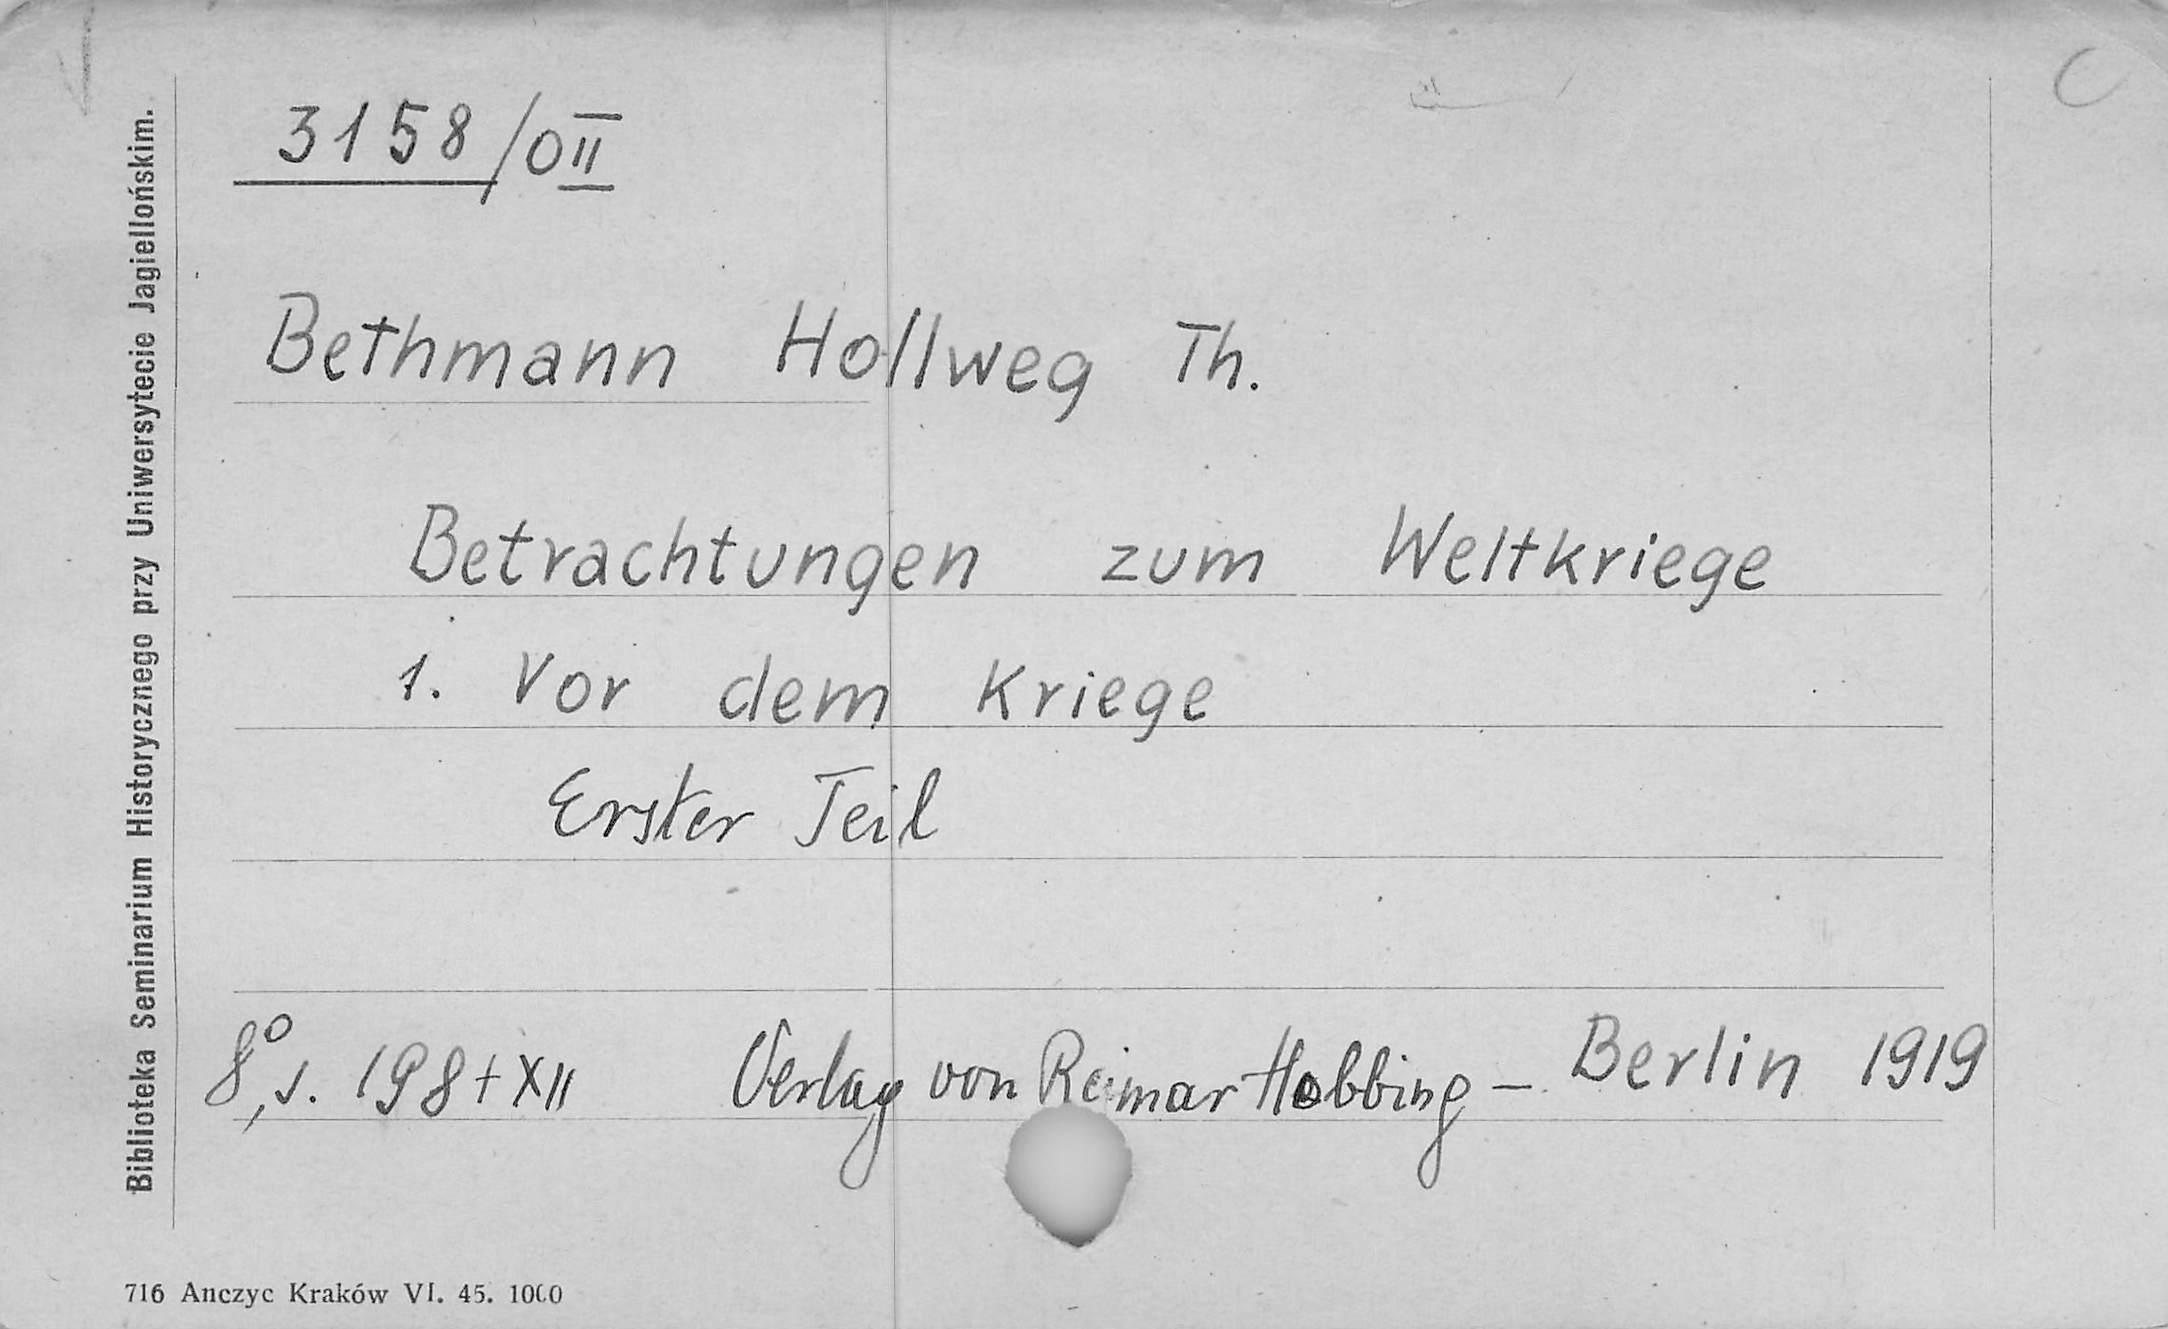 3158/0II
Bethmann Hollweg Th.
Betrachtungen zum Weltkriege
1. Vor dem Kriege
Erster Teil
8°, s. 198 + XII Verlag von Reimar Hobbing – Berlin 1919
Biblioteka Seminarium Historycznego przy Uniwersytecie Jagiellońskim.
716 Anczyc Kraków VI. 45. 1000